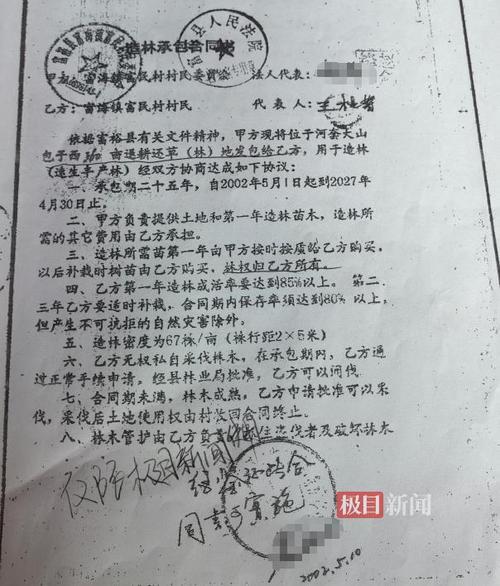 造林承包合同
富裕县人民法院
甲方：富海镇富民村村民委员会 法人代表：
乙方：富海镇富民村村民 代表人：
依据富裕县有关文件精神，甲方现将位于河套大山
包子西 亩退耕还草（林）地发包给乙方，用于造林
（造生丰产林）经双方协商达成如下协议：
一、承包期二十五年，自2002年5月1日起到2027年
4月30日止。
二、甲方负责提供土地和第一年造林苗木，造林所
需的其它费用由乙方承担。
三、造林所需苗第一年由甲方按时按质给乙方购买，
以后补栽时树苗由乙方购买，林权归乙方所有。
四、乙方第一年造林成活率要达到85%以上。第二、
三年乙方要适时补栽，合同期内保存率须达到80%以上，
但产生不可抗拒的自然灾害除外。
五、造林密度为67株/亩（株行距2×5米）
六、乙方无权私自采伐林木，在承包期内，乙方通
过正常手续申请，经县林业局批准，乙方可以间伐。
七、合同期未满，林木成熟，乙方申请批准可以采
伐，采伐后土地使用权由村收回合同终止。
八、林木管护由乙方负责 盗伐者及破坏林木
仅供极目新闻
同意 实施
极目新闻
2002.5.10